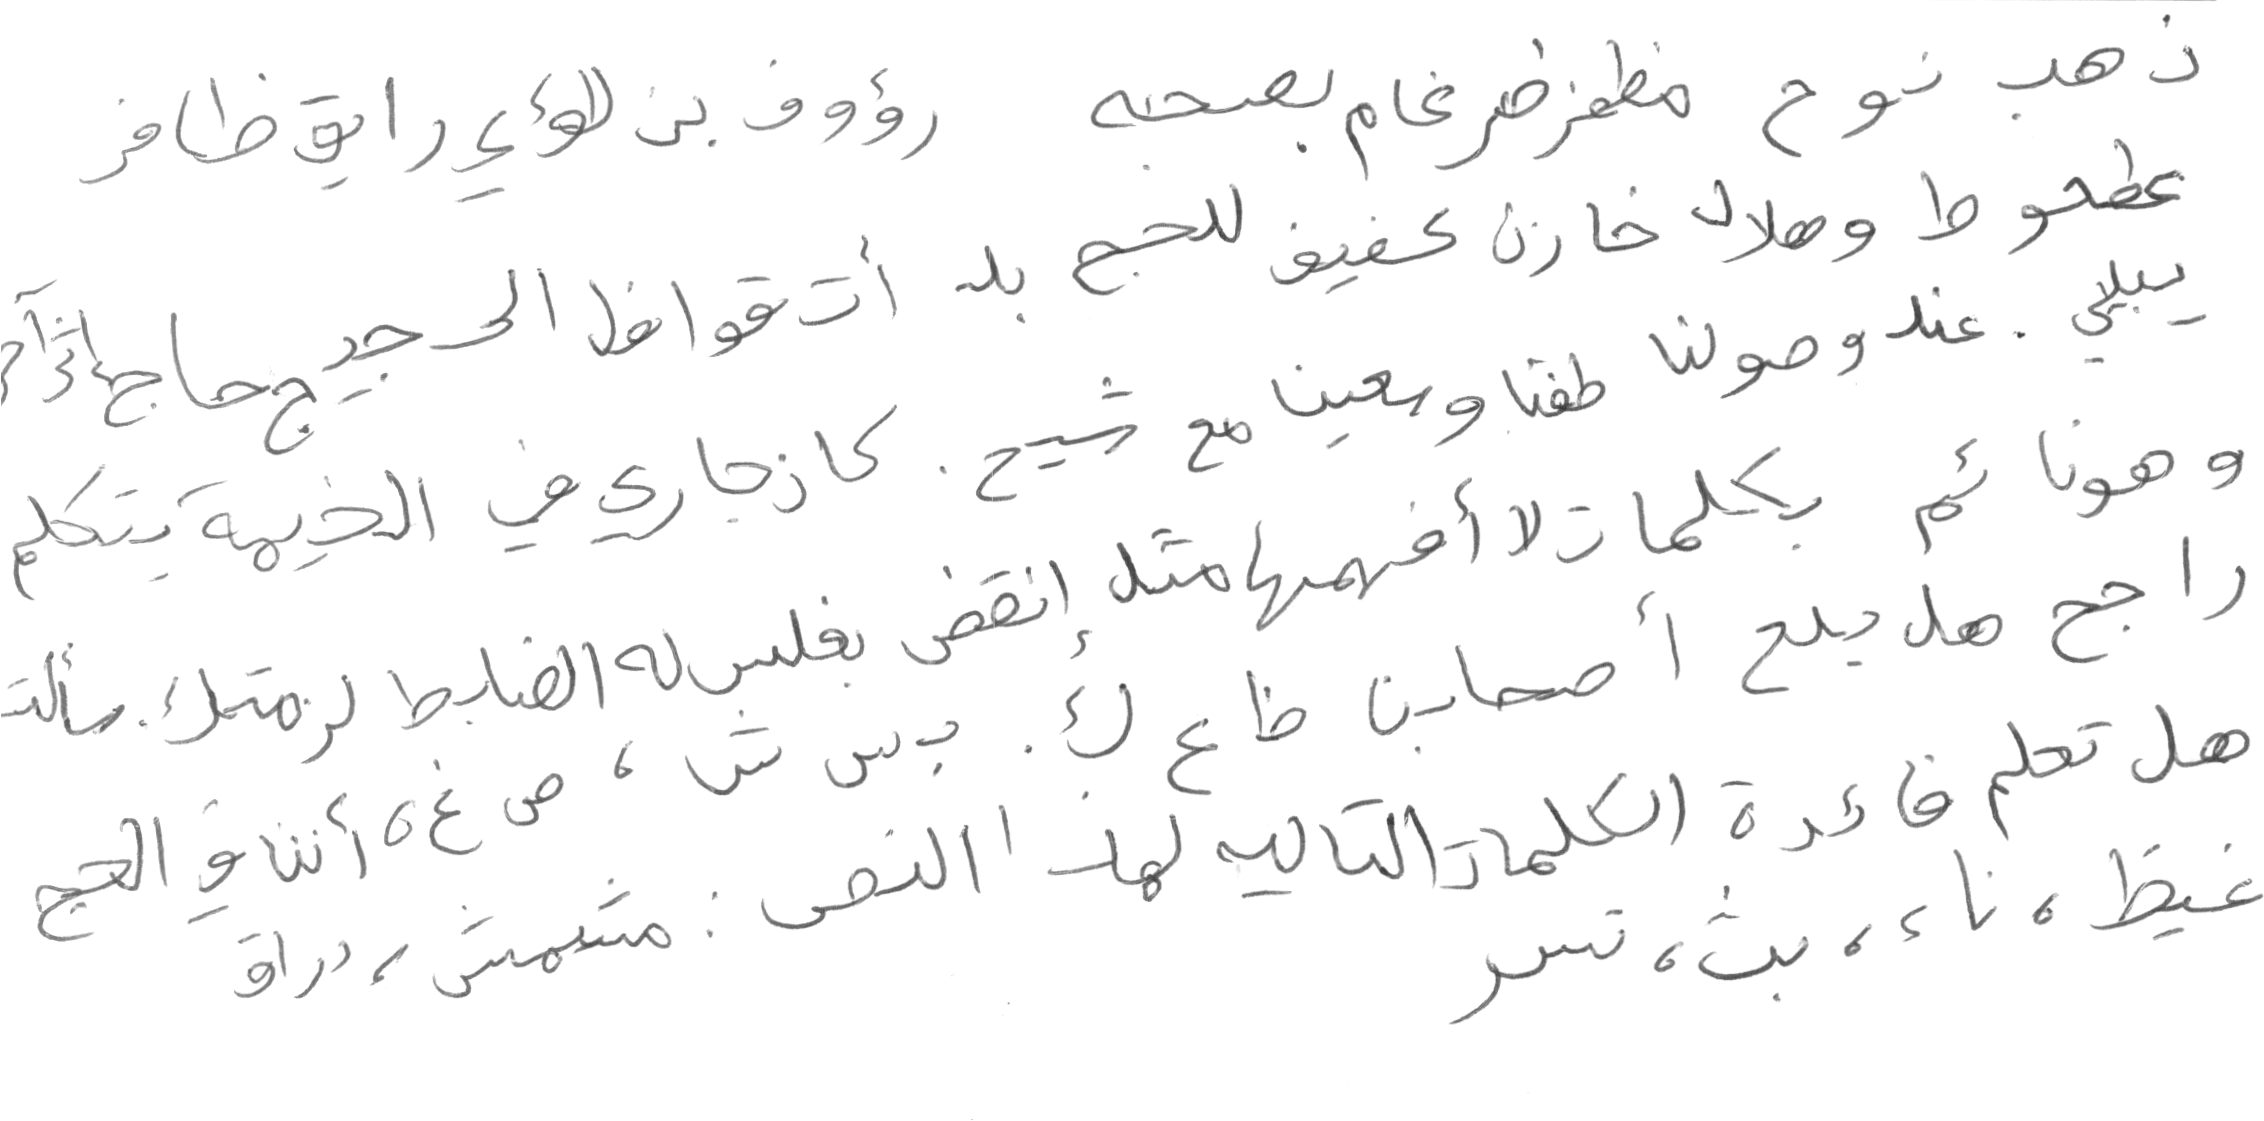 ذهب نوح مظفر ضرغام بصحبه رؤوف بن لؤي رايق ظافر
عطعوط وهلال خازن كفيف للحج بلد أت قوافل الى حجيج حاج
يبلي . عند وصولنا طفنا وسعينا مع شيخ . كان جاري في الخيمة يتكلم
وهو نائم بكلمات لا أفهمها مثل إنقض بغلس له الضابط لزمتك . سألت
راجح هل يدع أصحابنا ظ ع ك . ب س ش ، ص غ ، أثناء الحج
هل تعلم فائدة الكلمات التاليه لهذا النص : مشمش ، دراق
غيظ ، ناء ، بث ، تسر